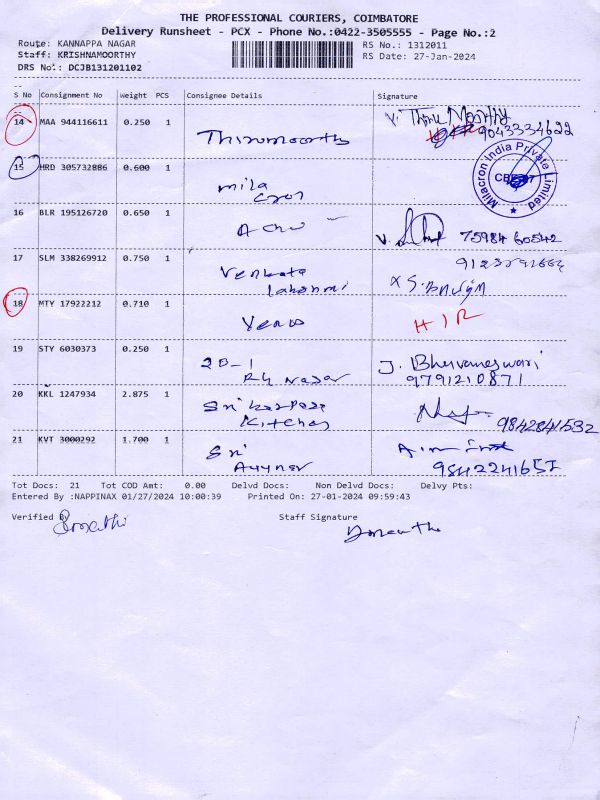 THE PROFESSIONAL COURIERS, COIMBATORE
Delivery Runsheet - PCX - Phone No.:0422-3505555 - Page No.:2
Route: KANNAPPA NAGAR
RS No.: 1312011
Staff: KRISHNAMOORTHY
RS Date: 27-Jan-2024
DRS No.: DCJB131201102
S No Consignment No Weight PCS Consignee Details Signature
14 MAA 944116611 0.250 1 Thirumoorthy V. Thiru Moorthy
9043334622
15 HRD 305732886 0.600 1 Mila
Milacron India Private Limited
16 BLR 195126720 0.650 1 Achu
75984 60542
17 SLM 338269912 0.750 1 Venkata
Lakshmi
18 MTY 17922212 0.710 1
19 STY 6030373 0.250 1 20-1 J. Bhuvaneswari
RK Nagar 9791210871
20 KKL 1247934 2.875 1 Sri
Kitchen 9842841532
21 KVT 3000292 1.700 1 Sri
Tot Docs: 21 Tot COD Amt: 0.00 Delvd Docs: Non Delvd Docs: Delvy Pts:
Entered By :NAPPINAX 01/27/2024 10:00:39 Printed On: 27-01-2024 09:59:43
Verified By Staff Signature